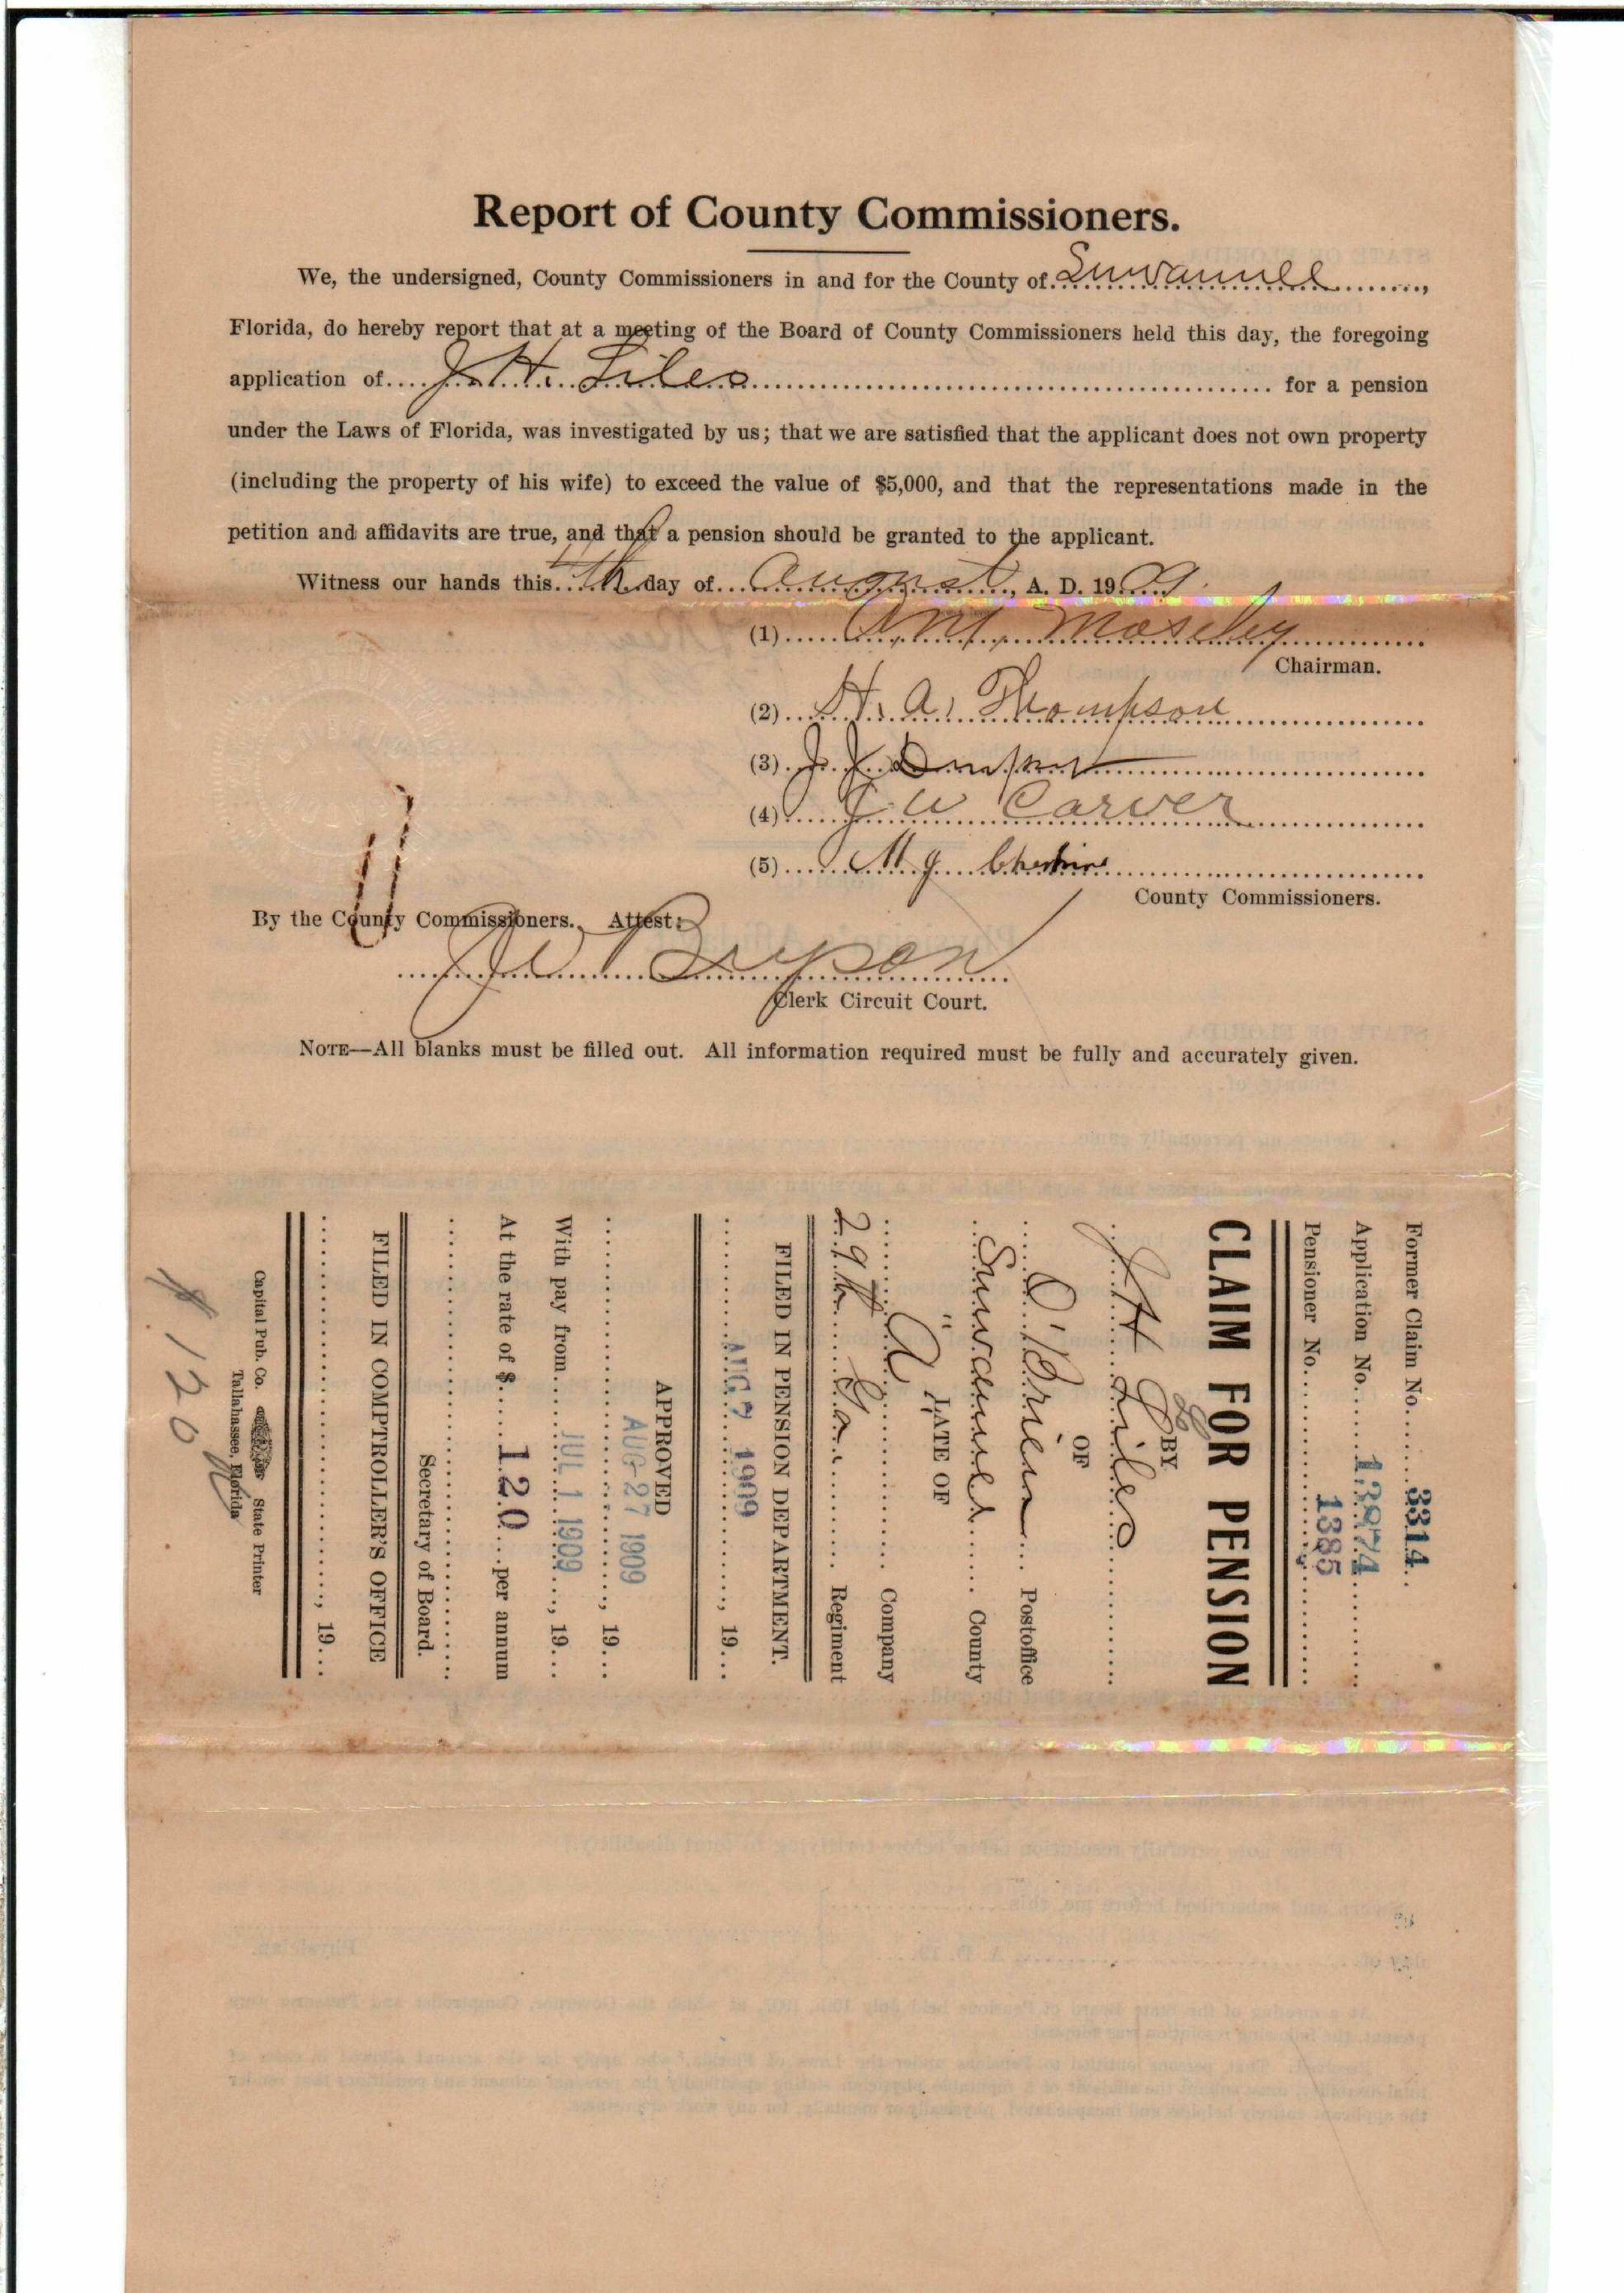 Report of County Commissioners.
We, the undersigned, County Commissioners in and for the County of Suwannee,
Florida, do hereby report that at a meeting of the Board of County Commissioners held this day, the foregoing
application of J. H. Liles for a pension
under the Laws of Florida, was investigated by us; that we are satisfied that the applicant does not own property
(including the property of his wife) to exceed the value of $5,000, and that the representations made in the
petition and affidavits are true, and that a pension should be granted to the applicant.
Witness our hands this day of August, A. D. 19 09.
(1) Moseley
Chairman.
(2) H. A. Thompson
(3) J. J.
(4) J. W. Carver
(5) M J
County Commissioners.
By the County Commissioners. Attest:
J W Bryson
Clerk Circuit Court.
NOTE—All blanks must be filled out. All information required must be fully and accurately given.
Former Claim No. 3314
Application No. 13974
Pensioner No. 1385
CLAIM FOR PENSION
BY
J H Liles
OF
O'Brien Postoffice
Suwannee County
LATE OF
" A " Company
29th Ga. Regiment
FILED IN PENSION DEPARTMENT.
AUG 7 1909, 19
APPROVED
AUG 27 1909, 19
With pay from JUL 1 1909, 19
At the rate of $ 120 per annum
Secretary of Board.
FILED IN COMPTROLLER'S OFFICE
, 19
Capital Pub. Co. State Printer
Tallahassee, Florida
$120